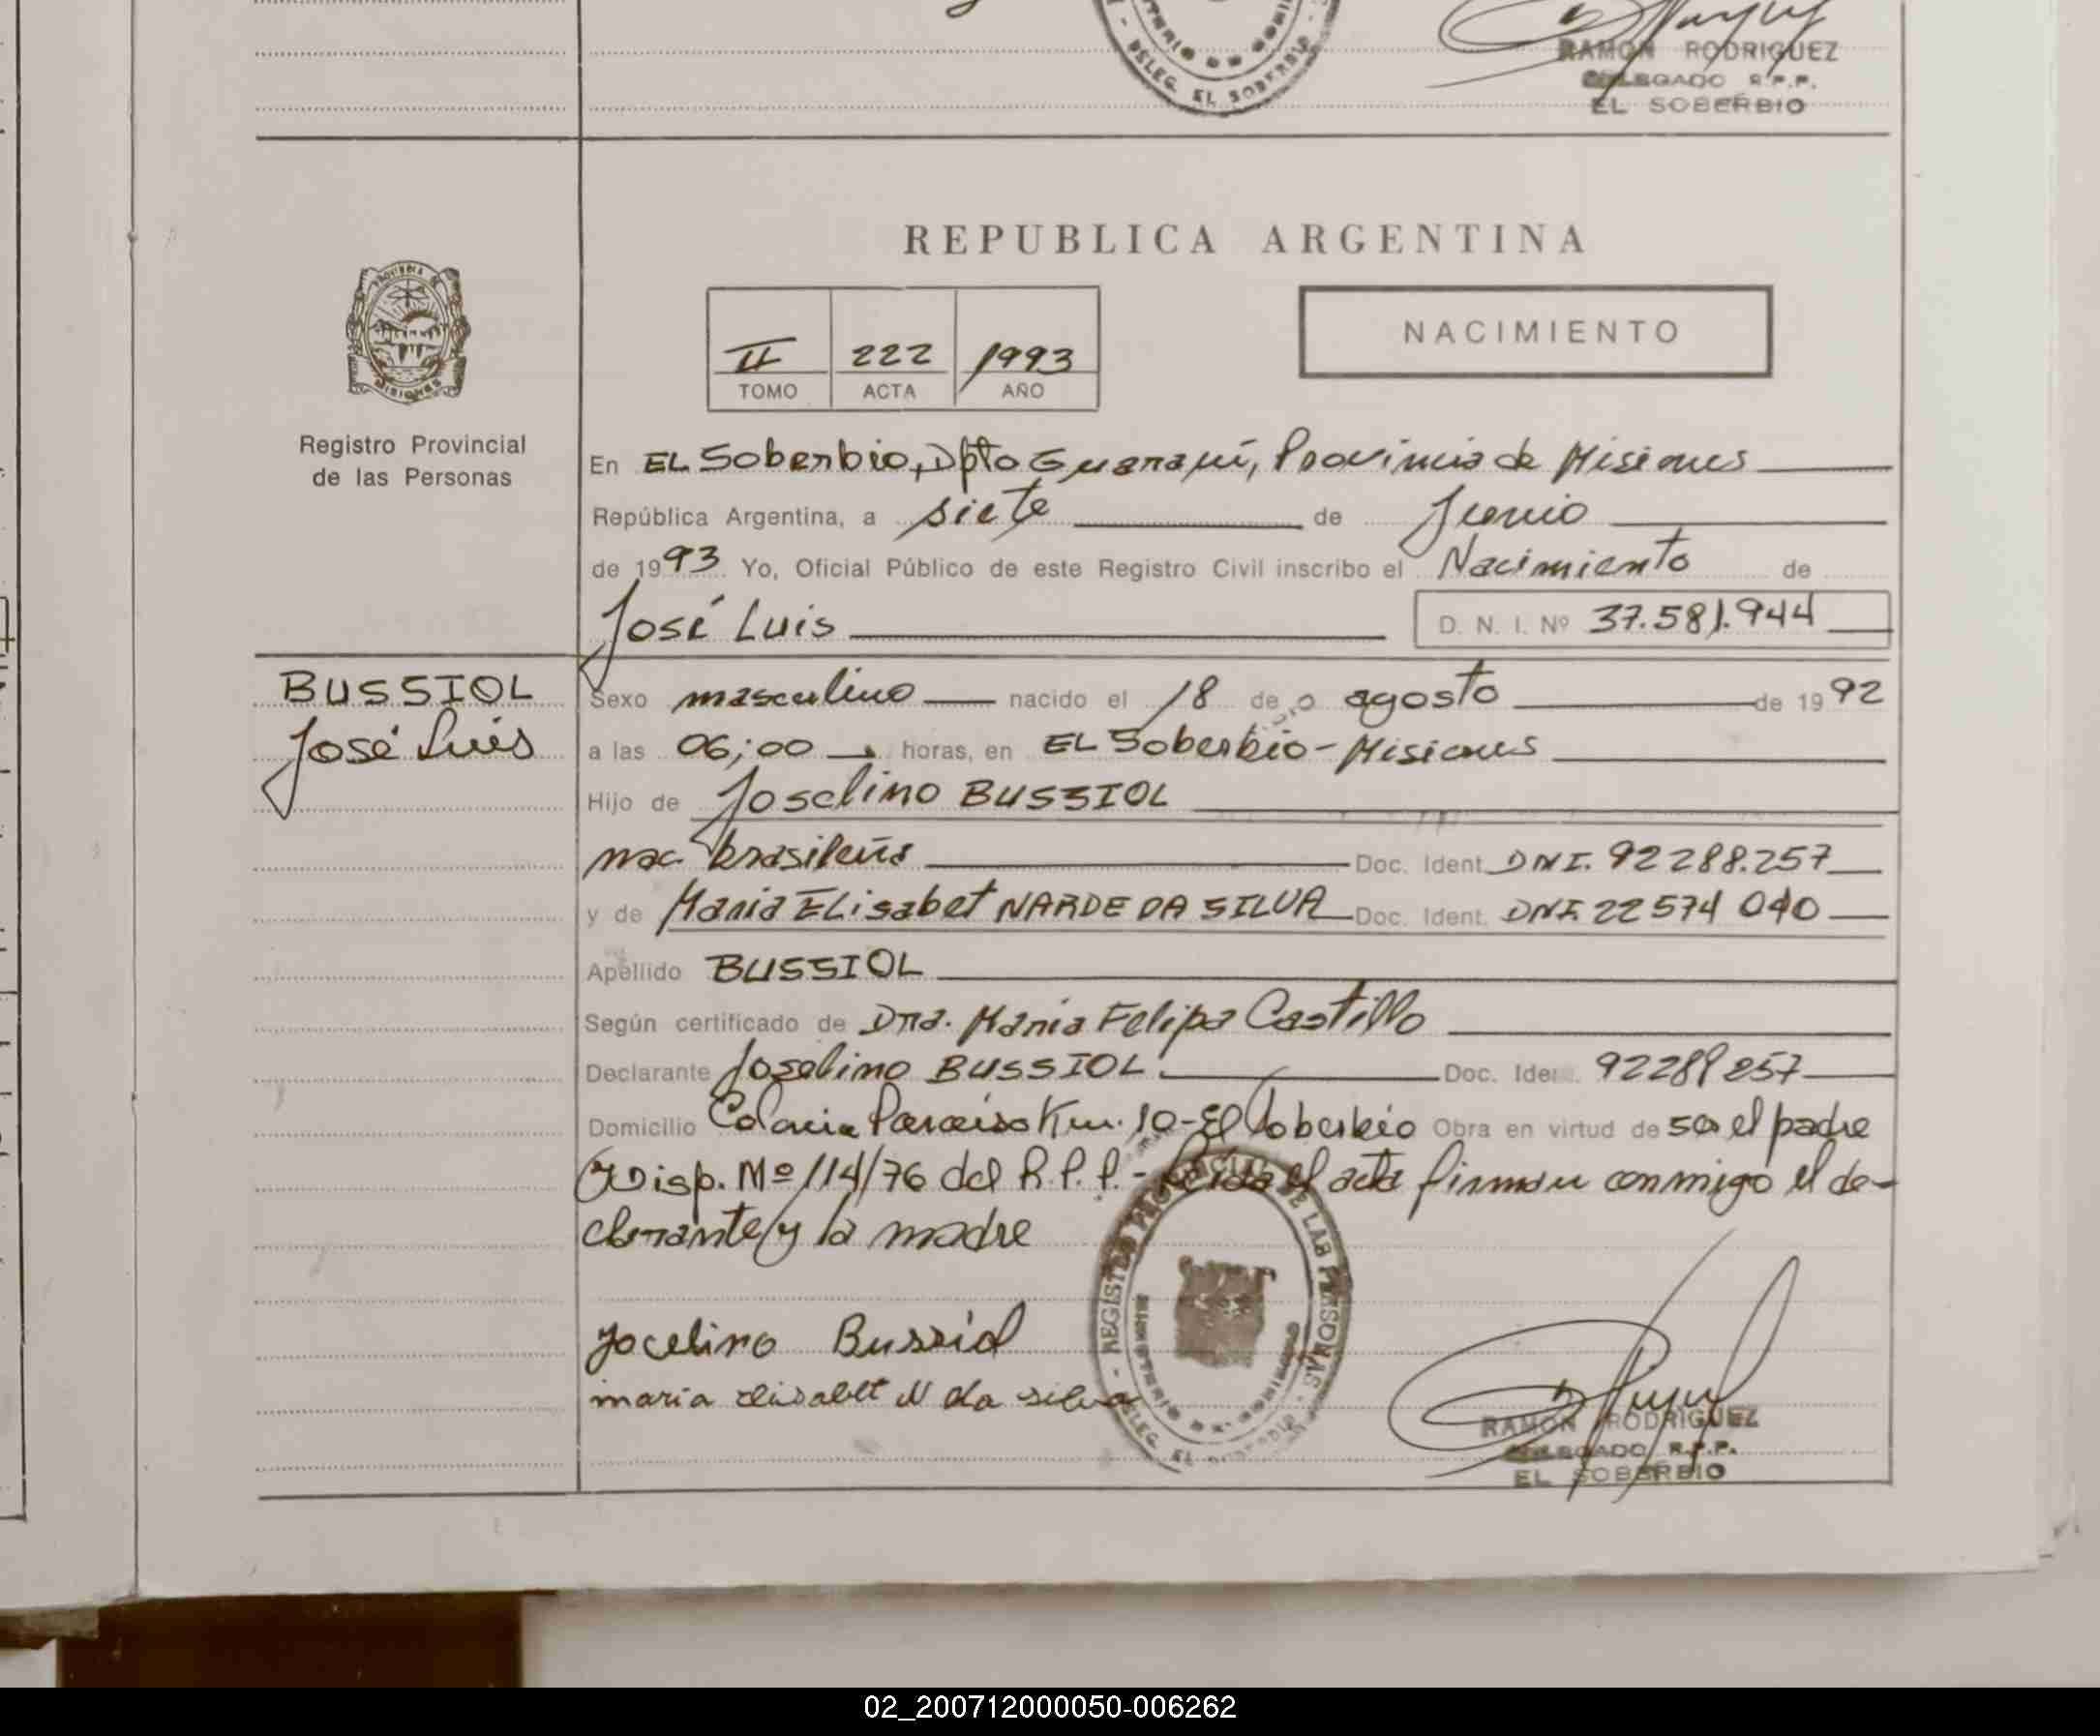 RAMON RODRIGUEZ
DELEGADO R.P.P.
EL SOBERBIO
REPUBLICA ARGENTINA
II 222 1993
TOMO ACTA AÑO
NACIMIENTO
Registro Provincial
de las Personas
En EL Soberbio, Dpto Guaraní, Provincia de Misiones
República Argentina, a siete de Junio
de 1993 Yo, Oficial Público de este Registro Civil inscribo el Nacimiento de
José Luis D. N. I. Nº 37.581.944
BUSSIOL
José Luis
Sexo masculino nacido el 18 de agosto de 1992
a las 06;00 horas, en EL Soberbio - Misiones
Hijo de Joselino BUSSIOL
nac. brasileña Doc. Ident. DNI. 92288.257
y de Maria ELisabet NARDE DA SILVA Doc. Ident. DNI. 22574 040
Apellido BUSSIOL
Según certificado de Dra. Maria Felipa Castillo
Declarante Joselino BUSSIOL Doc. Iden. 92288257
Domicilio Colonia Paraiso Km. 10 - El Soberbio Obra en virtud de ser el padre
y Disp. Nº 114/76 del R.P.P. - Leida el acta firman conmigo el de-
clarante y la madre
Jocelino Bussiol
maria elisabet N da silva
REGISTRO PROVINCIAL DE LAS PERSONAS
DELEG. EL SOBERBIO
RAMON RODRIGUEZ
DELEGADO R.P.P.
EL SOBERBIO
02_200712000050-006262